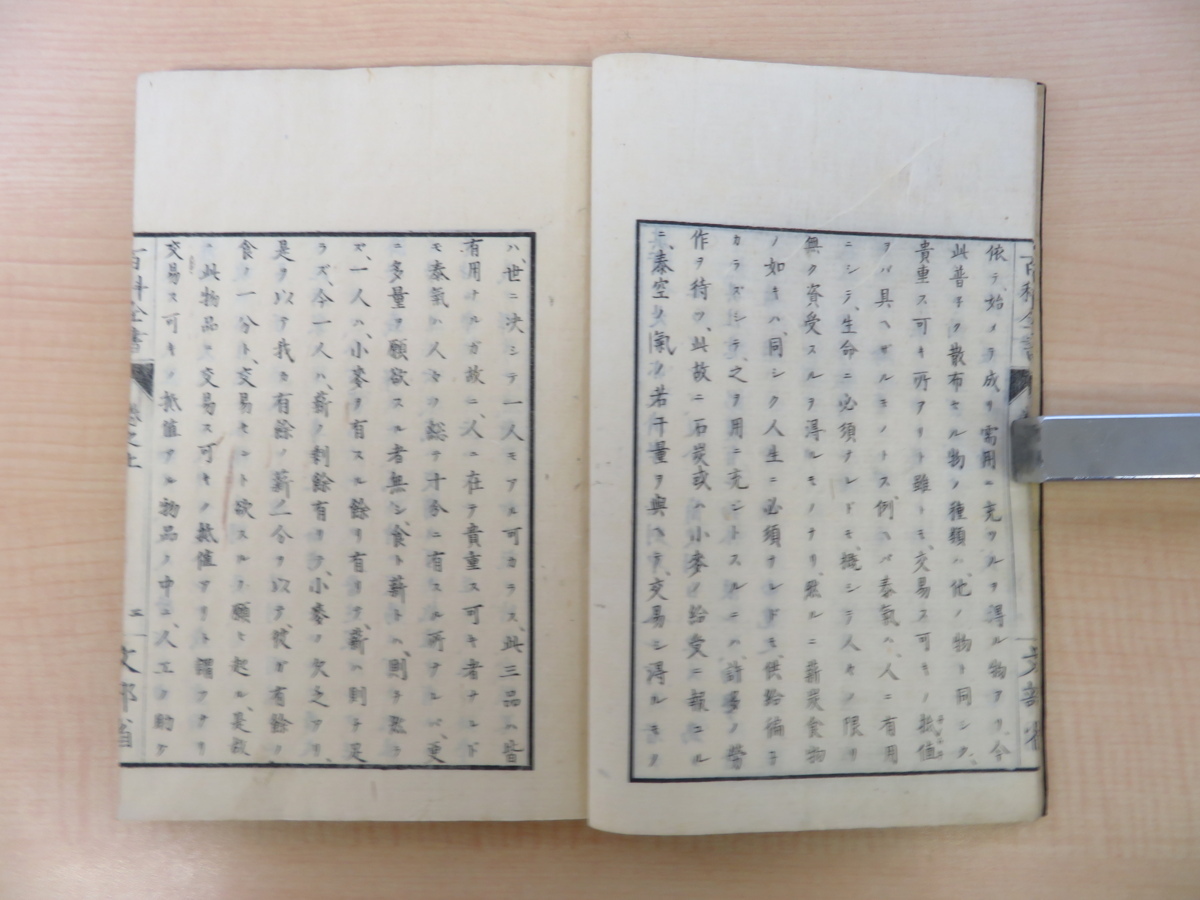 依テ、始メテ成リ需用ニ充ツルヲ得ル物アリ、今
此普子ク散布セル物ノ種類ハ、他ノ物ト同シク、
貴重ス可キ所アリト雖トモ、交易ス可キノ抵値
ヲバ具ヘザルモノトス、例ヘバ泰氣ハ、人ニ有用
ニシテ、生命ニ必須ナレドモ、概シテ人々ノ限リ
無ク資受スルヲ得ルモノナリ、然ルニ薪炭食物
ノ如キハ、同シク人生ニ必須ナレドモ、供給備子
カラズシテ、之ヲ用ニ充ントスルニハ、許多ノ勞
作ヲ待ツ、此故ニ石炭或ハ小麥ノ給受ニ報ニル
ニ、泰空ノ氣ノ若干量ヲ與ヘテ、交易シ得ルモノ
ハ、世ニ決シテ一人モアル可カラス、此三品ハ皆
有用ナルガ故ニ、人ニ在テ貴重ス可キ者ナレド
モ泰氣ハ人々ノ總テ十分ニ有スル所ナレバ、更
ニ多量ヲ願欲スル者無シ、食ト薪トハ、則チ然ラ
ズ、一人ハ、小麥ヲ有スル餘リ有リテ、薪ハ則チ足
ラズ、今一人ハ、薪ノ剰餘有リテ、小麥ノ欠乏アリ、
是ヲ以テ我カ有餘ノ薪一分ヲ以テ、彼ガ有餘ノ
食ノ一分ト、交易セント欲スルノ願ヒ起ル、是故
ニ此物品ニ交易ス可キノ抵値アリト謂フナリ
交易ス可キノ抵値アル物品ノ中ニ、人工ノ助ケ
百科全書
卷之上
二
文部省